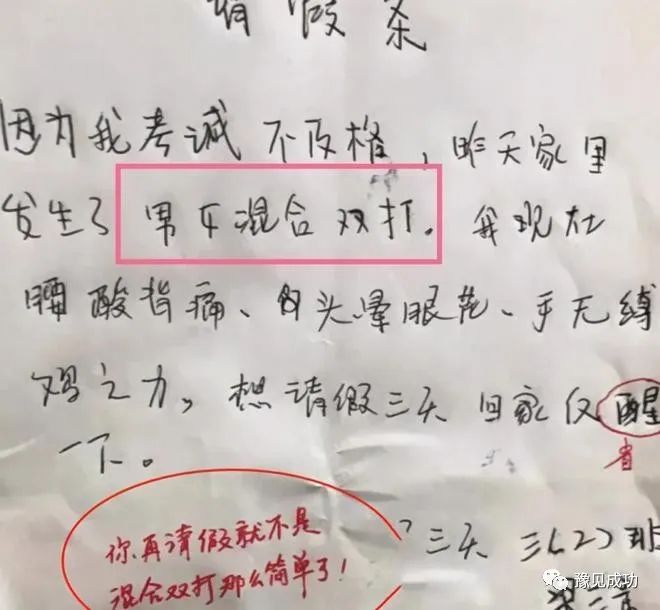 请假条
因为我考诚不及格,昨天家里
发生了男女混合双打。我现在
腰酸背痛、头晕眼花、手无缚
鸡之力,想请假三天回家反醒
一下。
省
三天 三(2)班
你再请假就不是
混合双打那么简单了!
豫见成功